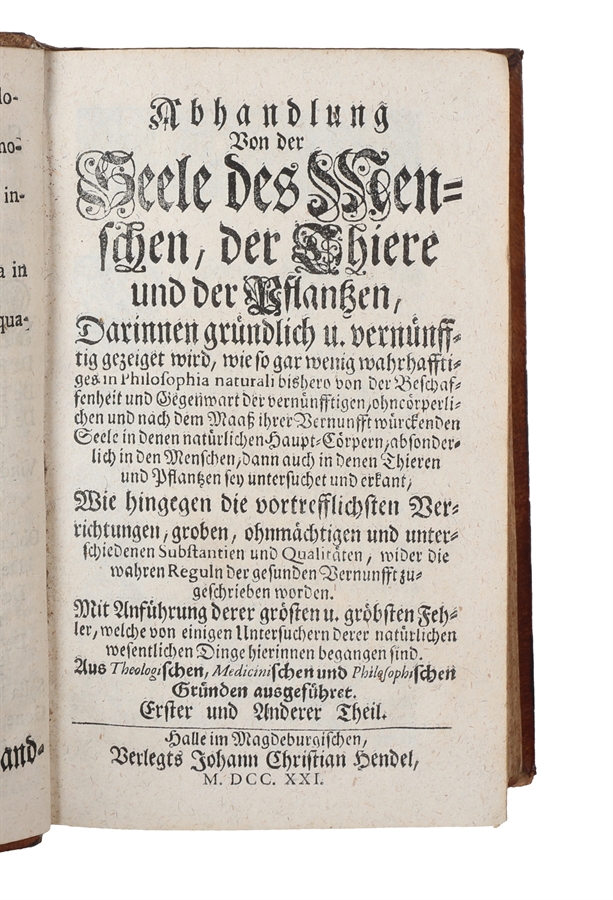 lo-
no-
in-
a in
qua-
and-
Abhandlung
Von der
Seele des Men-
schen, der Thiere
und der Pflantzen,
Darinnen gründlich u. vernünff-
tig gezeiget wird, wie so gar wenig wahrhaffti-
ges in Philosophia naturali bishero von der Beschaf-
fenheit und Gegenwart der vernünfftigen, ohncörperli-
chen und nach dem Maaß ihrer Vernunfft würckenden
Seele in denen natürlichen Haupt-Cörpern, absonder-
lich in den Menschen, dann auch in denen Thieren
und Pflantzen sey untersuchet und erkant,
Wie hingegen die vortrefflichsten Ver-
richtungen, groben, ohnmächtigen und unter-
schiedenen Substantien und Qualitäten, wider die
wahren Reguln der gesunden Vernunfft zu-
geschrieben worden.
Mit Anführung derer grösten u. gröbsten Feh-
ler, welche von einigen Untersuchern derer natürlichen
wesentlichen Dinge hierinnen begangen sind.
Aus Theologischen, Medicinischen und Philosophischen
Gründen ausgeführet.
Erster und Anderer Theil.
Halle im Magdeburgischen,
Verlegts Johann Christian Hendel,
M. DCC. XXI.